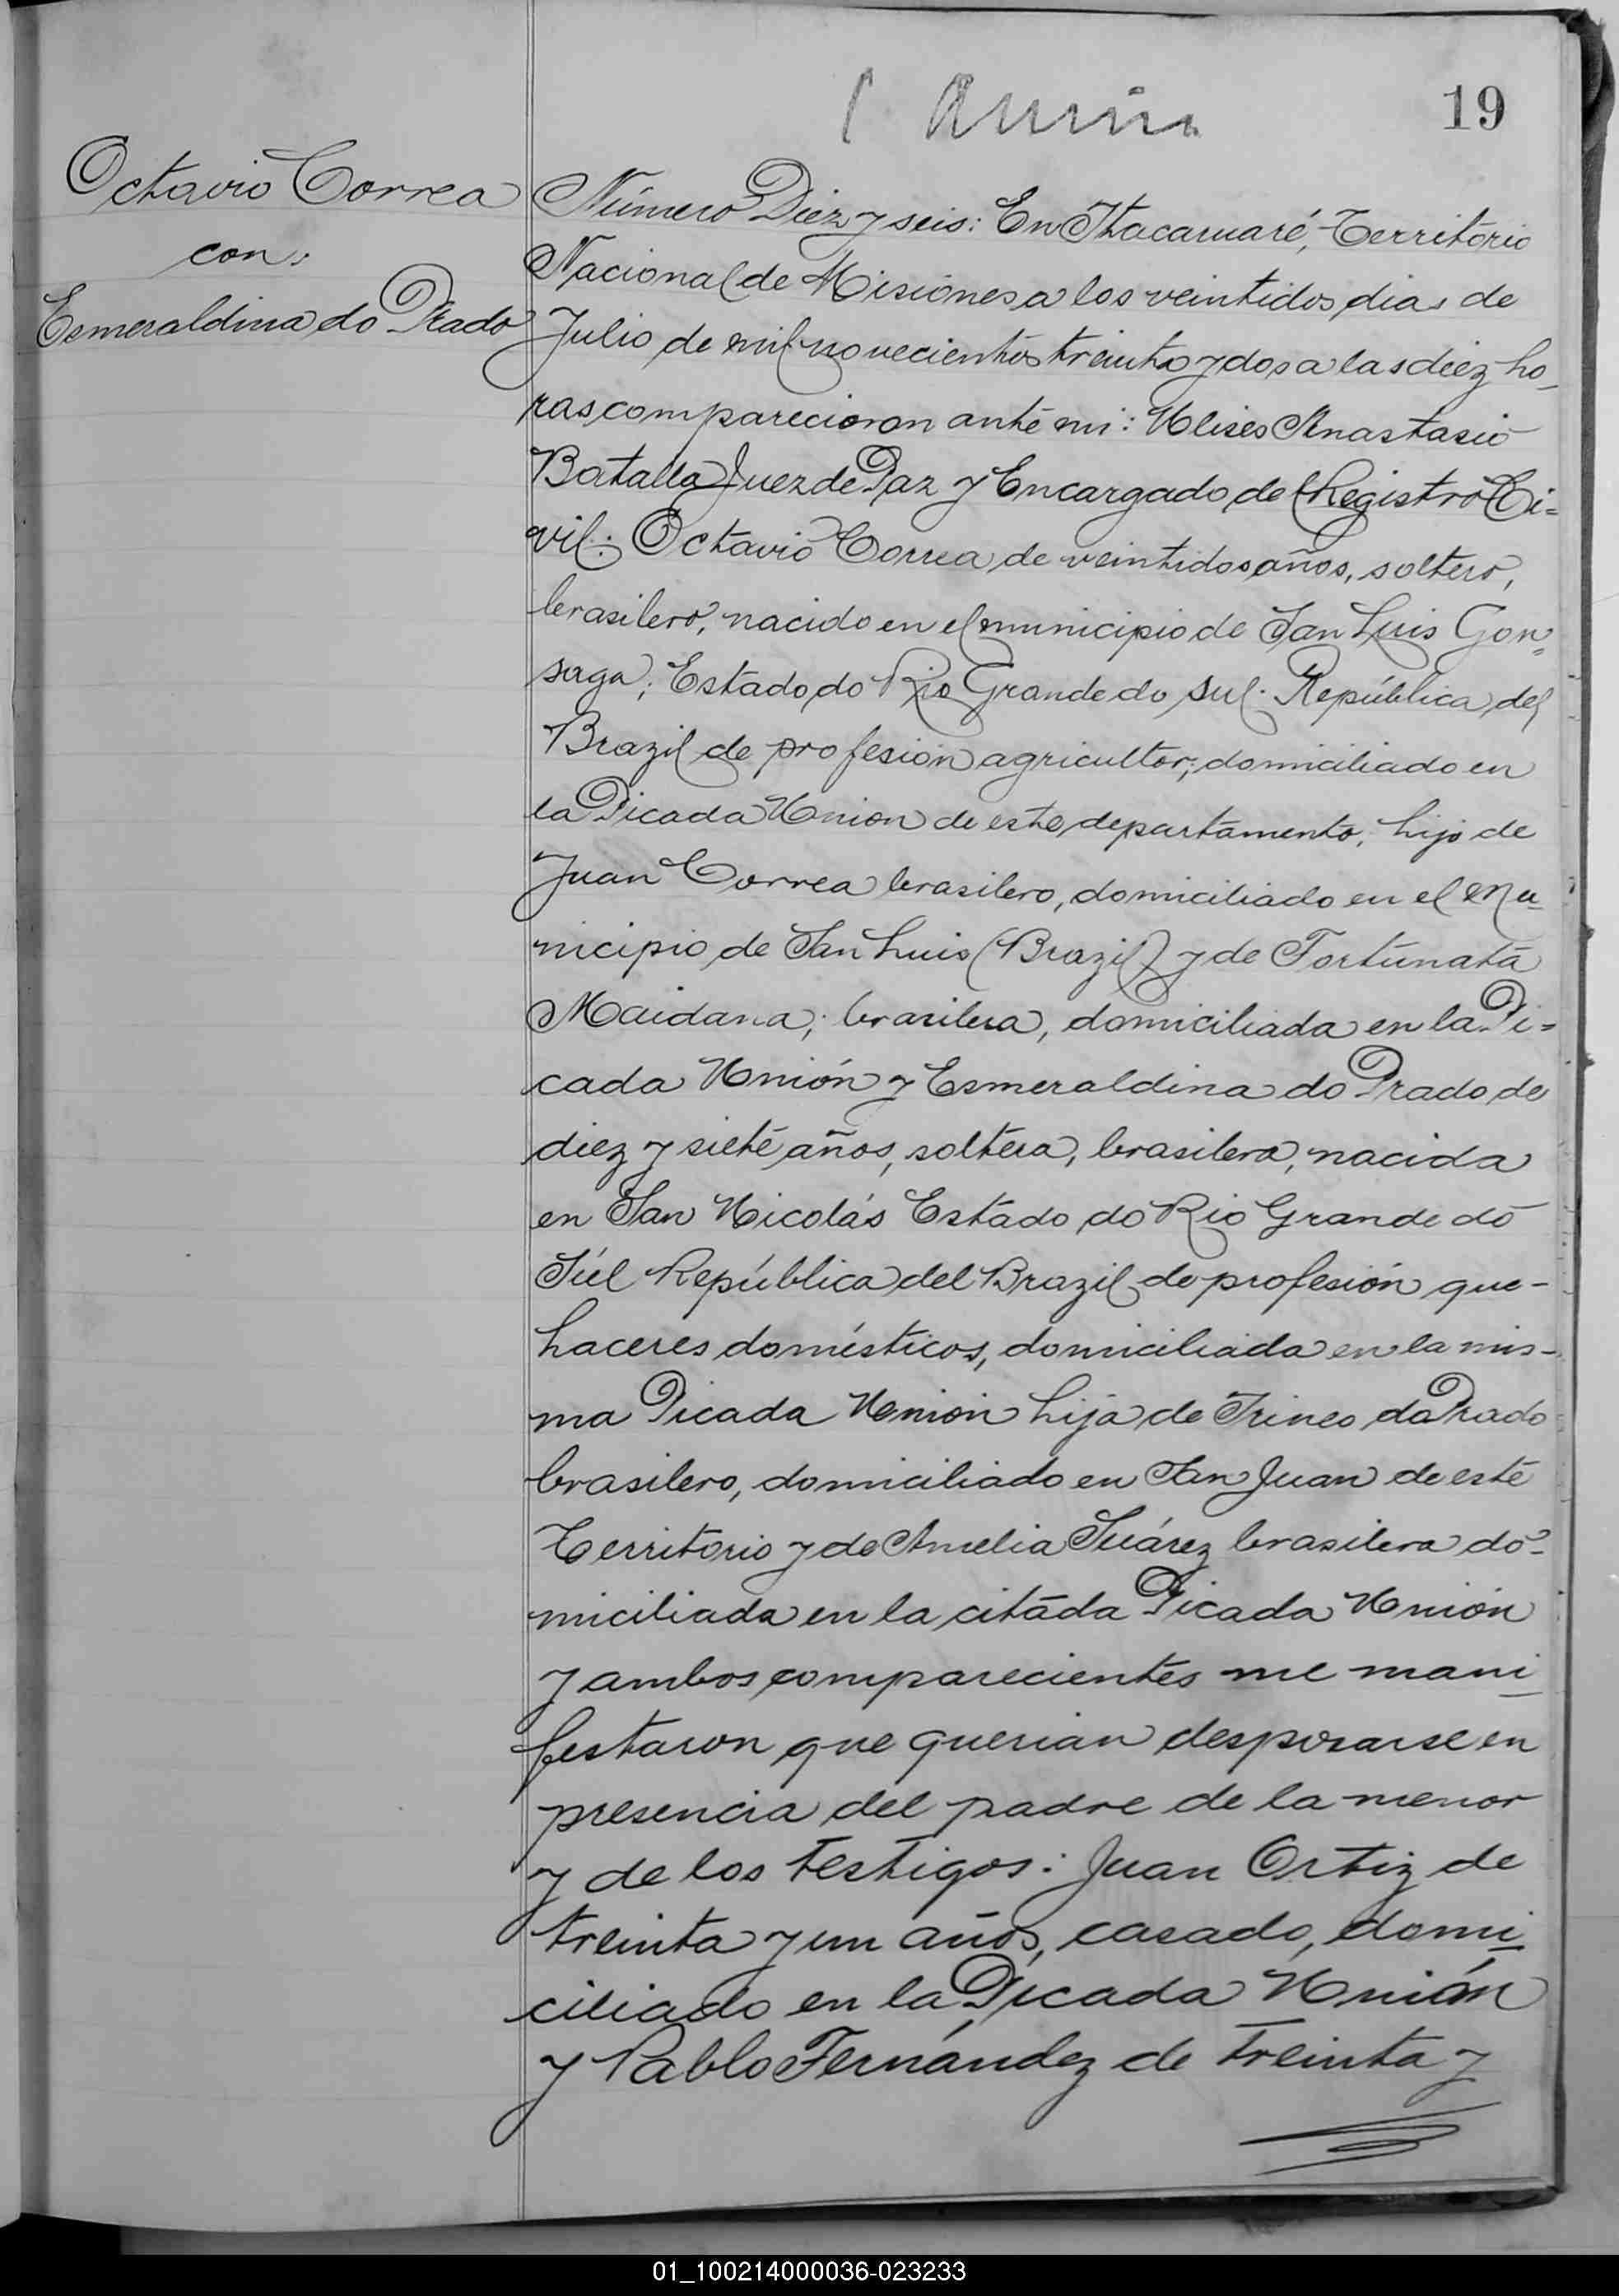 19
Octavio Correa
con
Esmeraldina do Prado
Número Diez y seis: En Itacaruaré, Territorio
Nacional de Misiones a los veintidos dias de
Julio de mil novecientos treinta y dos a las diez ho-
ras comparecieron ante mi: Ulises Anastasio
Batalla Juez de Paz y Encargado del Registro Ci=
vil: Octavio Correa de veintidos años, soltero,
brasilero, nacido en el municipio de San Luis Gon=
saga; Estado do Rio Grande do Sul. República del
Brazil de profesión agricultor; domiciliado en
la Picada Union de este departamento, hijo de
Juan Correa brasilero, domiciliado en el Mu-
nicipio de San Luis (Brazil) y de Fortunata
Maidana; brasilera, domiciliada en la Pi=
cada Unión y Esmeraldina do Prado de
diez y siete años, soltera, brasilera, nacida
en San Nicolás Estado do Rio Grande do
Súl República del Brazil de profesión que-
haceres domésticos, domiciliada en la mis-
ma Picada Unión hija de Irineo do Prado
brasilero, domiciliado en San Juan de este
Territorio y de Amelia Suárez brasilera do-
miciliada en la citada Picada Unión
y ambos comparecientes me mani-
festaron que querian desposarse en
presencia del padre de la menor
y de los testigos: Juan Ortiz de
treinta y un años, casado, domi-
ciliado en la Picada Unión
y Pablo Fernández de treinta y
01_100214000036-023233